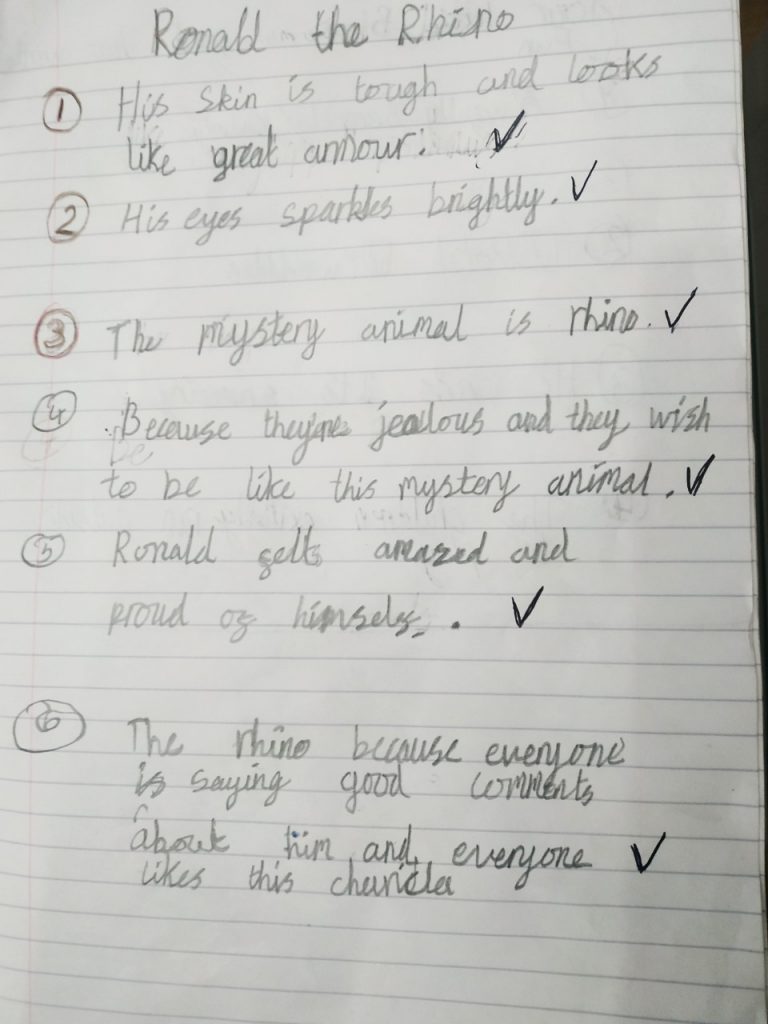 Ronald the Rhino
① His skin is tough and looks
like great armour. ✓
② His eyes sparkles brightly. ✓
③ The mystery animal is rhino. ✓
④ Because they're jealous and they wish
to be like this mystery animal. ✓
⑤ Ronald gelts amazed and
proud of himself. ✓
⑥ The rhino because everyone
is saying good comments
about him and everyone ✓
likes this